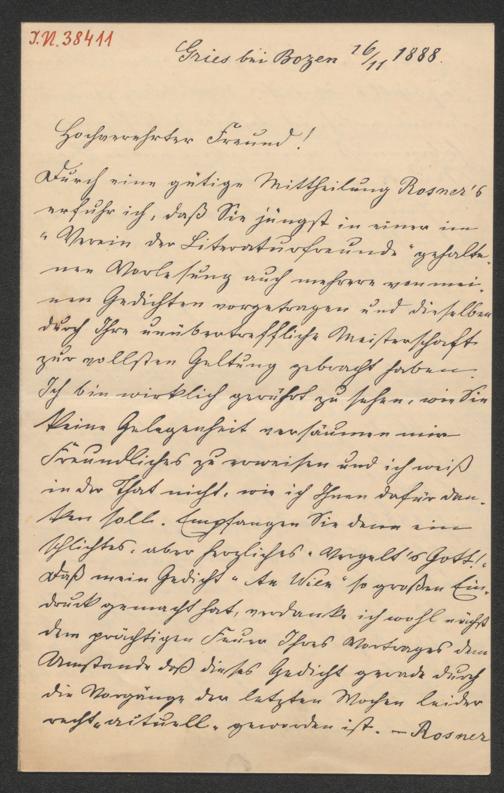 I.N. 38411
Gries bei Bozen 16/11 1888.
Hochverehrter Freund!
Durch eine gütige Mittheilung Rosner's
erfuhr ich, daß Sie jüngst in einer im
"Verein der Literaturfreunde" gehalte-
nen Vorlesung auch mehrere von mei-
nen Gedichten vorgetragen und dieselben
durch Ihre unübertreffliche Meisterschaft
zur vollsten Geltung gebracht haben.
Ich bin wirklich gerührt zu sehen, wie Sie
keine Gelegenheit versäumen mir
Freundliches zu erweisen und ich weiß
in der That nicht, wie ich Ihnen dafür dan-
ken soll. Empfangen Sie denn ein
schlichtes, aber herzliches "Vergelt's Gott!"
Daß mein Gedicht "An Wien" so großen Ein-
druck gemacht hat, verdanke ich wohl nächst
dem prächtigen Feuer Ihres Vortrages dem
Umstande daß dieses Gedicht gerade durch
die Vorgänge der letzten Wochen leider
recht "actuell" geworden ist. – Rosner